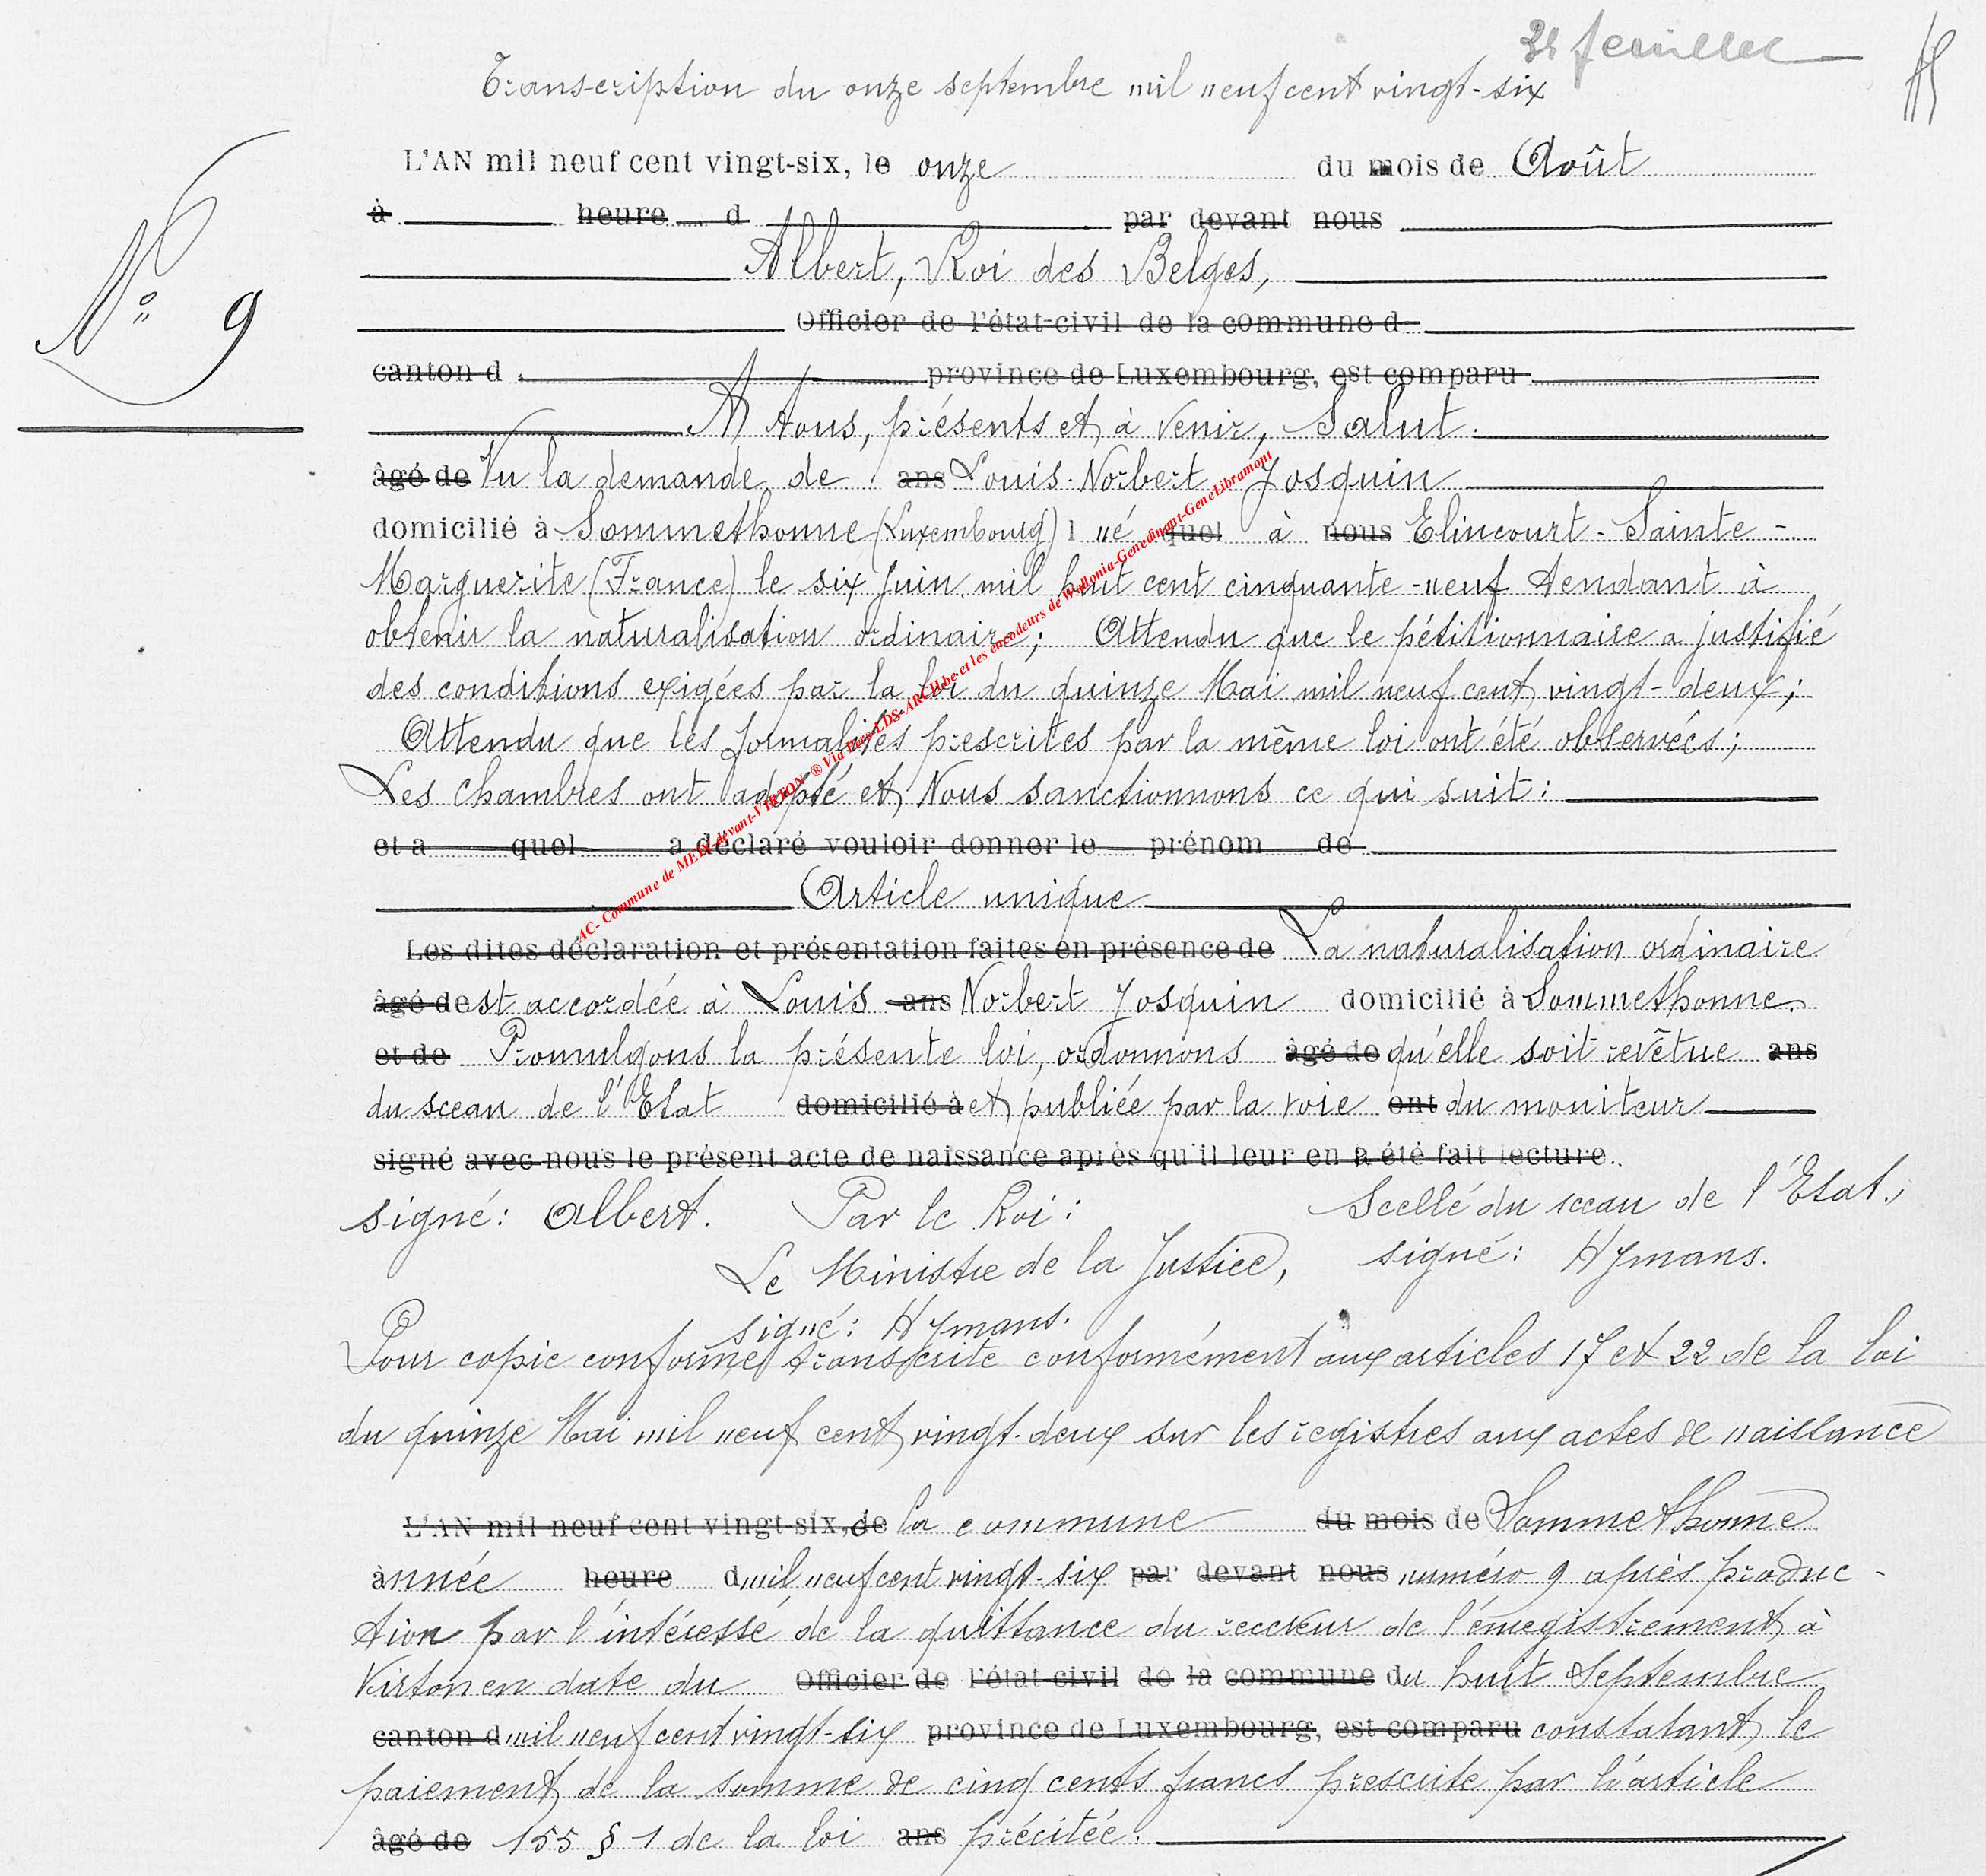 feuillet
Transcription du onze septembre mil neuf cent vingt-six
L'AN mil neuf cent vingt-six, le onze du mois de Août
à heure d par devant nous
Albert, Roi des Belges,
N° 9
Officier de l'état-civil de la commune d
canton d province de Luxembourg, est comparu
A tous, présents et à venir, Salut.
âgé de Vu la demande de ans Louis-Norbert Josquin
domicilié à Sommethonne (Luxembourg) l né quel à nous Elincourt-Sainte-
Marguerite (France) le six Juin mil huit cent cinquante-neuf tendant à
obtenir la naturalisation ordinaire; Attendu que le pétitionnaire a justifié
des conditions exigées par la loi du quinze Mai mil neuf cent vingt-deux;
Attendu que les formalités prescrites par la même loi ont été observées;
Les Chambres ont adopté et Nous sanctionnons ce qui suit:
et a quel a déclaré vouloir donner le prénom de
Article unique
Les dites déclaration et présentation faites en présence de La naturalisation ordinaire
âgé dest accordée à Louis ans Norbert Josquin domicilié à Sommethonne.
et de Promulgons la présente loi, ordonnons âgé de qu'elle soit revêtue ans
du sceau de l'Etat domicilié à et publiée par la voie ont du moniteur
signé avec nous le présent acte de naissance après qu'il leur en a été fait lecture.
signé: Albert. Par le Roi: Scellé du sceau de l'Etat.,
Le Ministre de la Justice, signé: Hymans.
signé: Hymans.
Pour copie conforme transcrite conformément aux articles 17 et 22 de la loi
du quinze Mai mil neuf cent vingt-deux sur les registres aux actes de naissance
L'AN mil neuf cent vingt-six, de la commune du mois de Sommethonne
année heure d mil neuf cent vingt-six par devant nous numéro 9 après produc-
tion par l'intéressé de la quittance du receveur de l'enregistrement à
Virton en date du Officier de l'état-civil de la commune du huit Septembre
canton d mil neuf cent vingt-six province de Luxembourg, est comparu constatant le
paiement de la somme de cinq cents francs prescrite par l'article
âgé de 155 § 1 de la loi ans précitée.
AC- Commune de MEIX-devant-VIRTON ® Via LDS-ARCH.be et les encodeurs de Wallonia-Genedinant-GeneLibramont